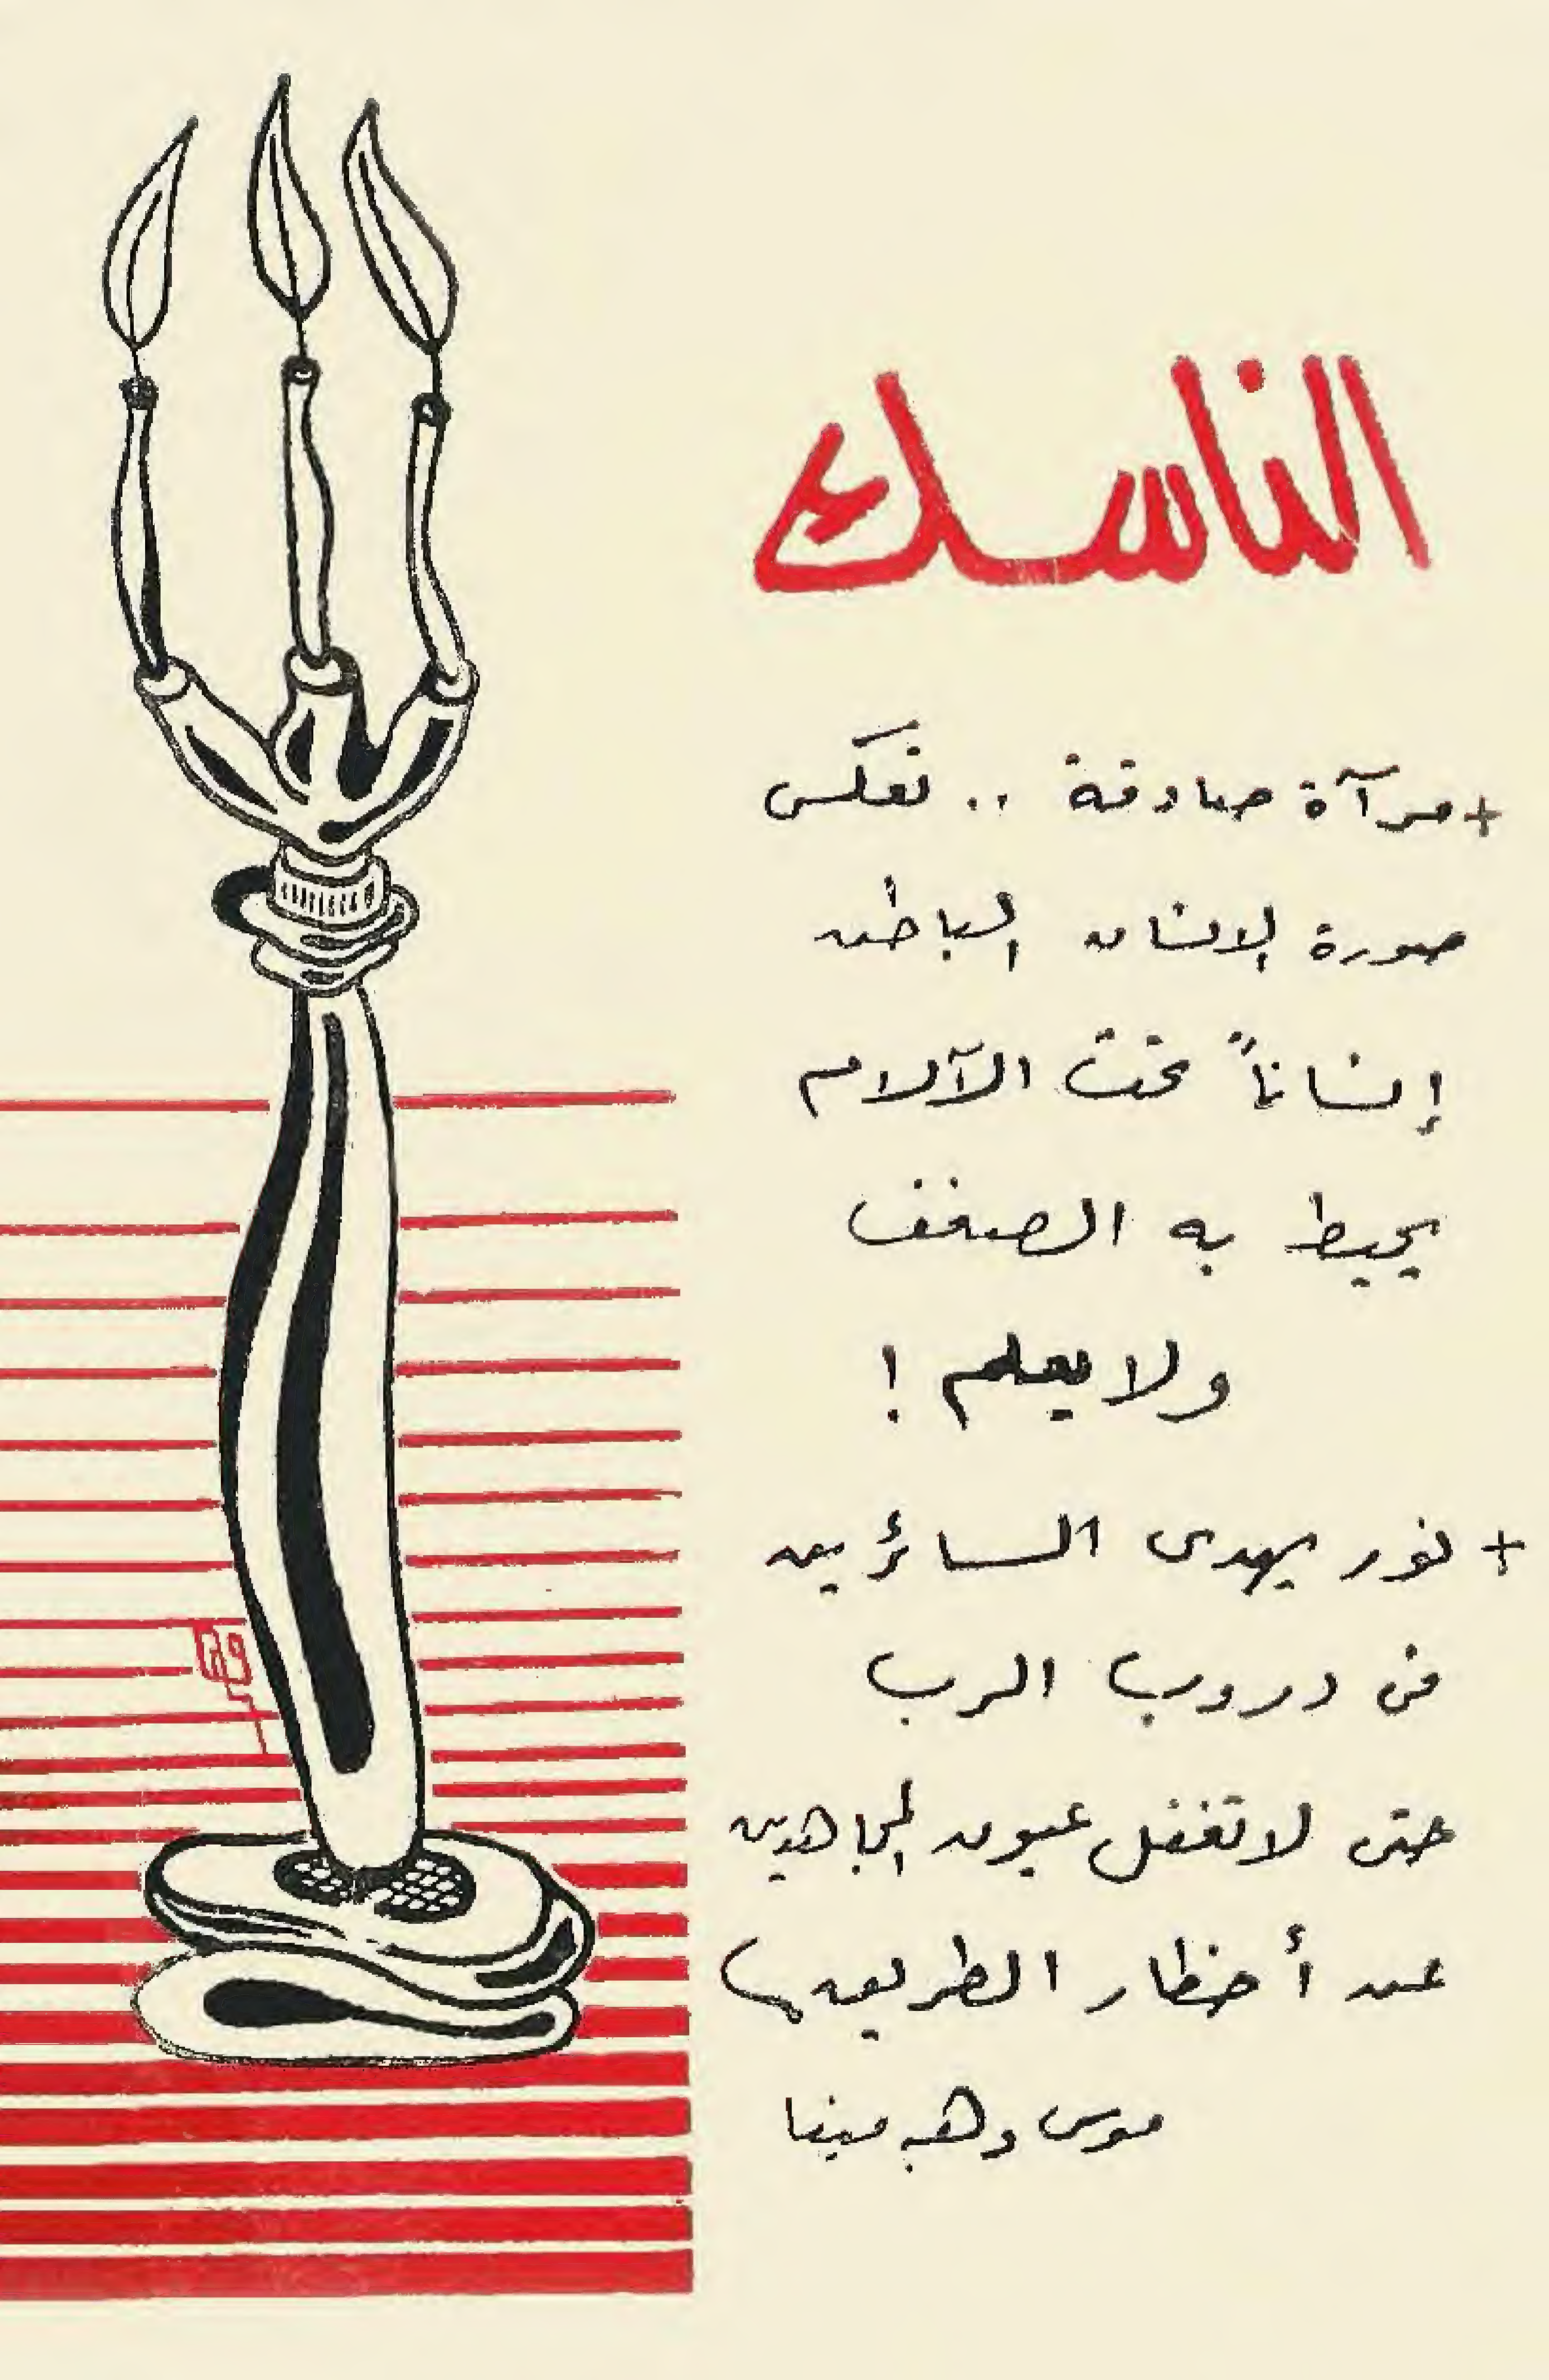 الناسك
+ مرآة صادقة .. تعكس
صورة الإنسان الباطن
إنساناً تحت الآلام
يحيط به الضعف
ولا يعلم !
+ نور يهدى السائرين
فى دروب الرب
حتى لا تغفل عيون المجاهدين
عن أخطار الطريق
موسى وهبه مينا